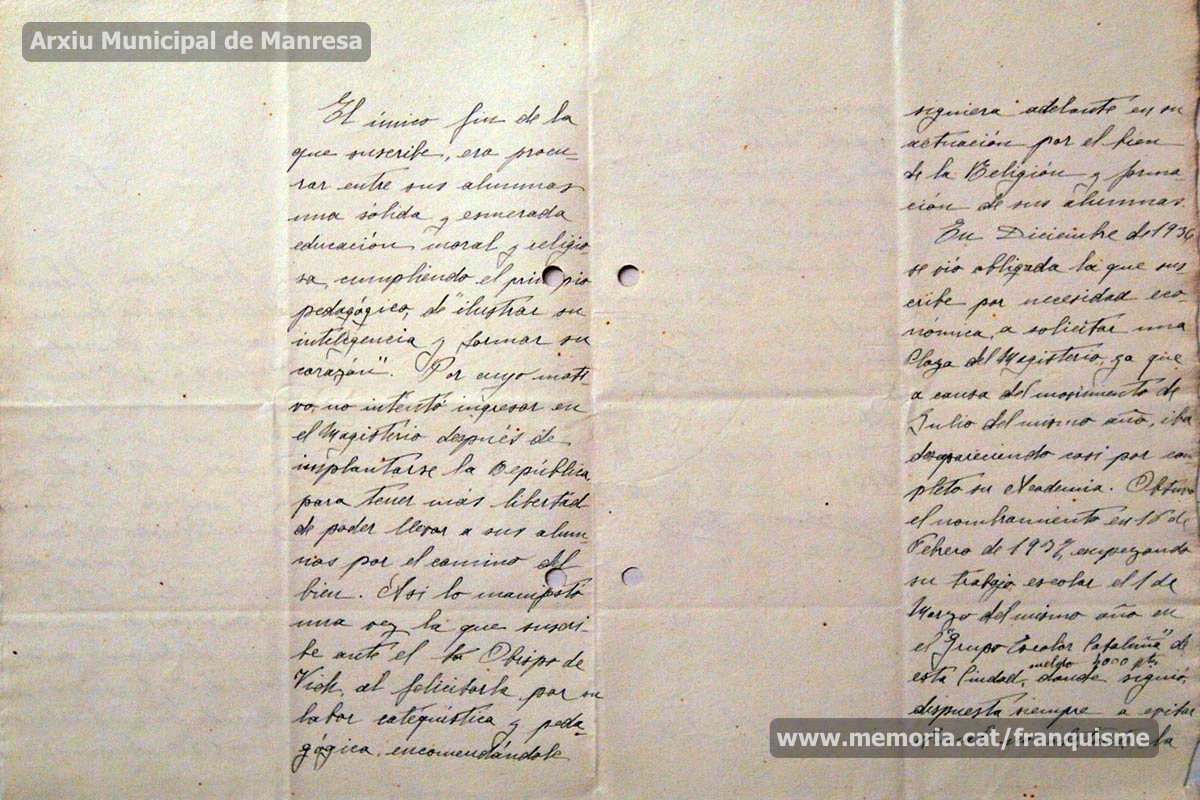 Arxiu Municipal de Manresa
El único fin de la
que suscribe, era procu-
rar entre sus alumnas
una sólida y esmerada
educación moral y religio
sa, cumpliendo el principio
pedagógico, de "ilustrar su
inteligencia y formar su
corazón". Por cuyo moti-
vo, no intentó ingresar en
el Magisterio después de
implantarse la República,
para tener más libertad
de poder llevar a sus alum-
nas por el camino del
bien. Así lo manifestó
una vez la que suscri-
be ante el Obispo de
Vich, al felicitarla por su
labor catequística y peda-
gógica, encomendándole
siguiera adelante en su
actuación por el bien
de la Religión y forma
ción de sus alumnas.
En Diciembre de 1936
se vió obligada la que sus
cribe por necesidad eco-
nómica, a solicitar una
Plaza del Magisterio, ya que
a causa del movimiento de
Julio del mismo año, iba
desapareciendo casi por com
pleto su Academia. Obtuvo
el nombramiento en 16 de
Febrero de 1937, empezando
su trabajo escolar el 1 de
Marzo del mismo año en
el "Grupo Escolar Cataluña" de
esta Ciudad, sueldo 3000 pts. donde siguió,
dispuesta siempre a evitar
la
www.memoria.cat/franquisme